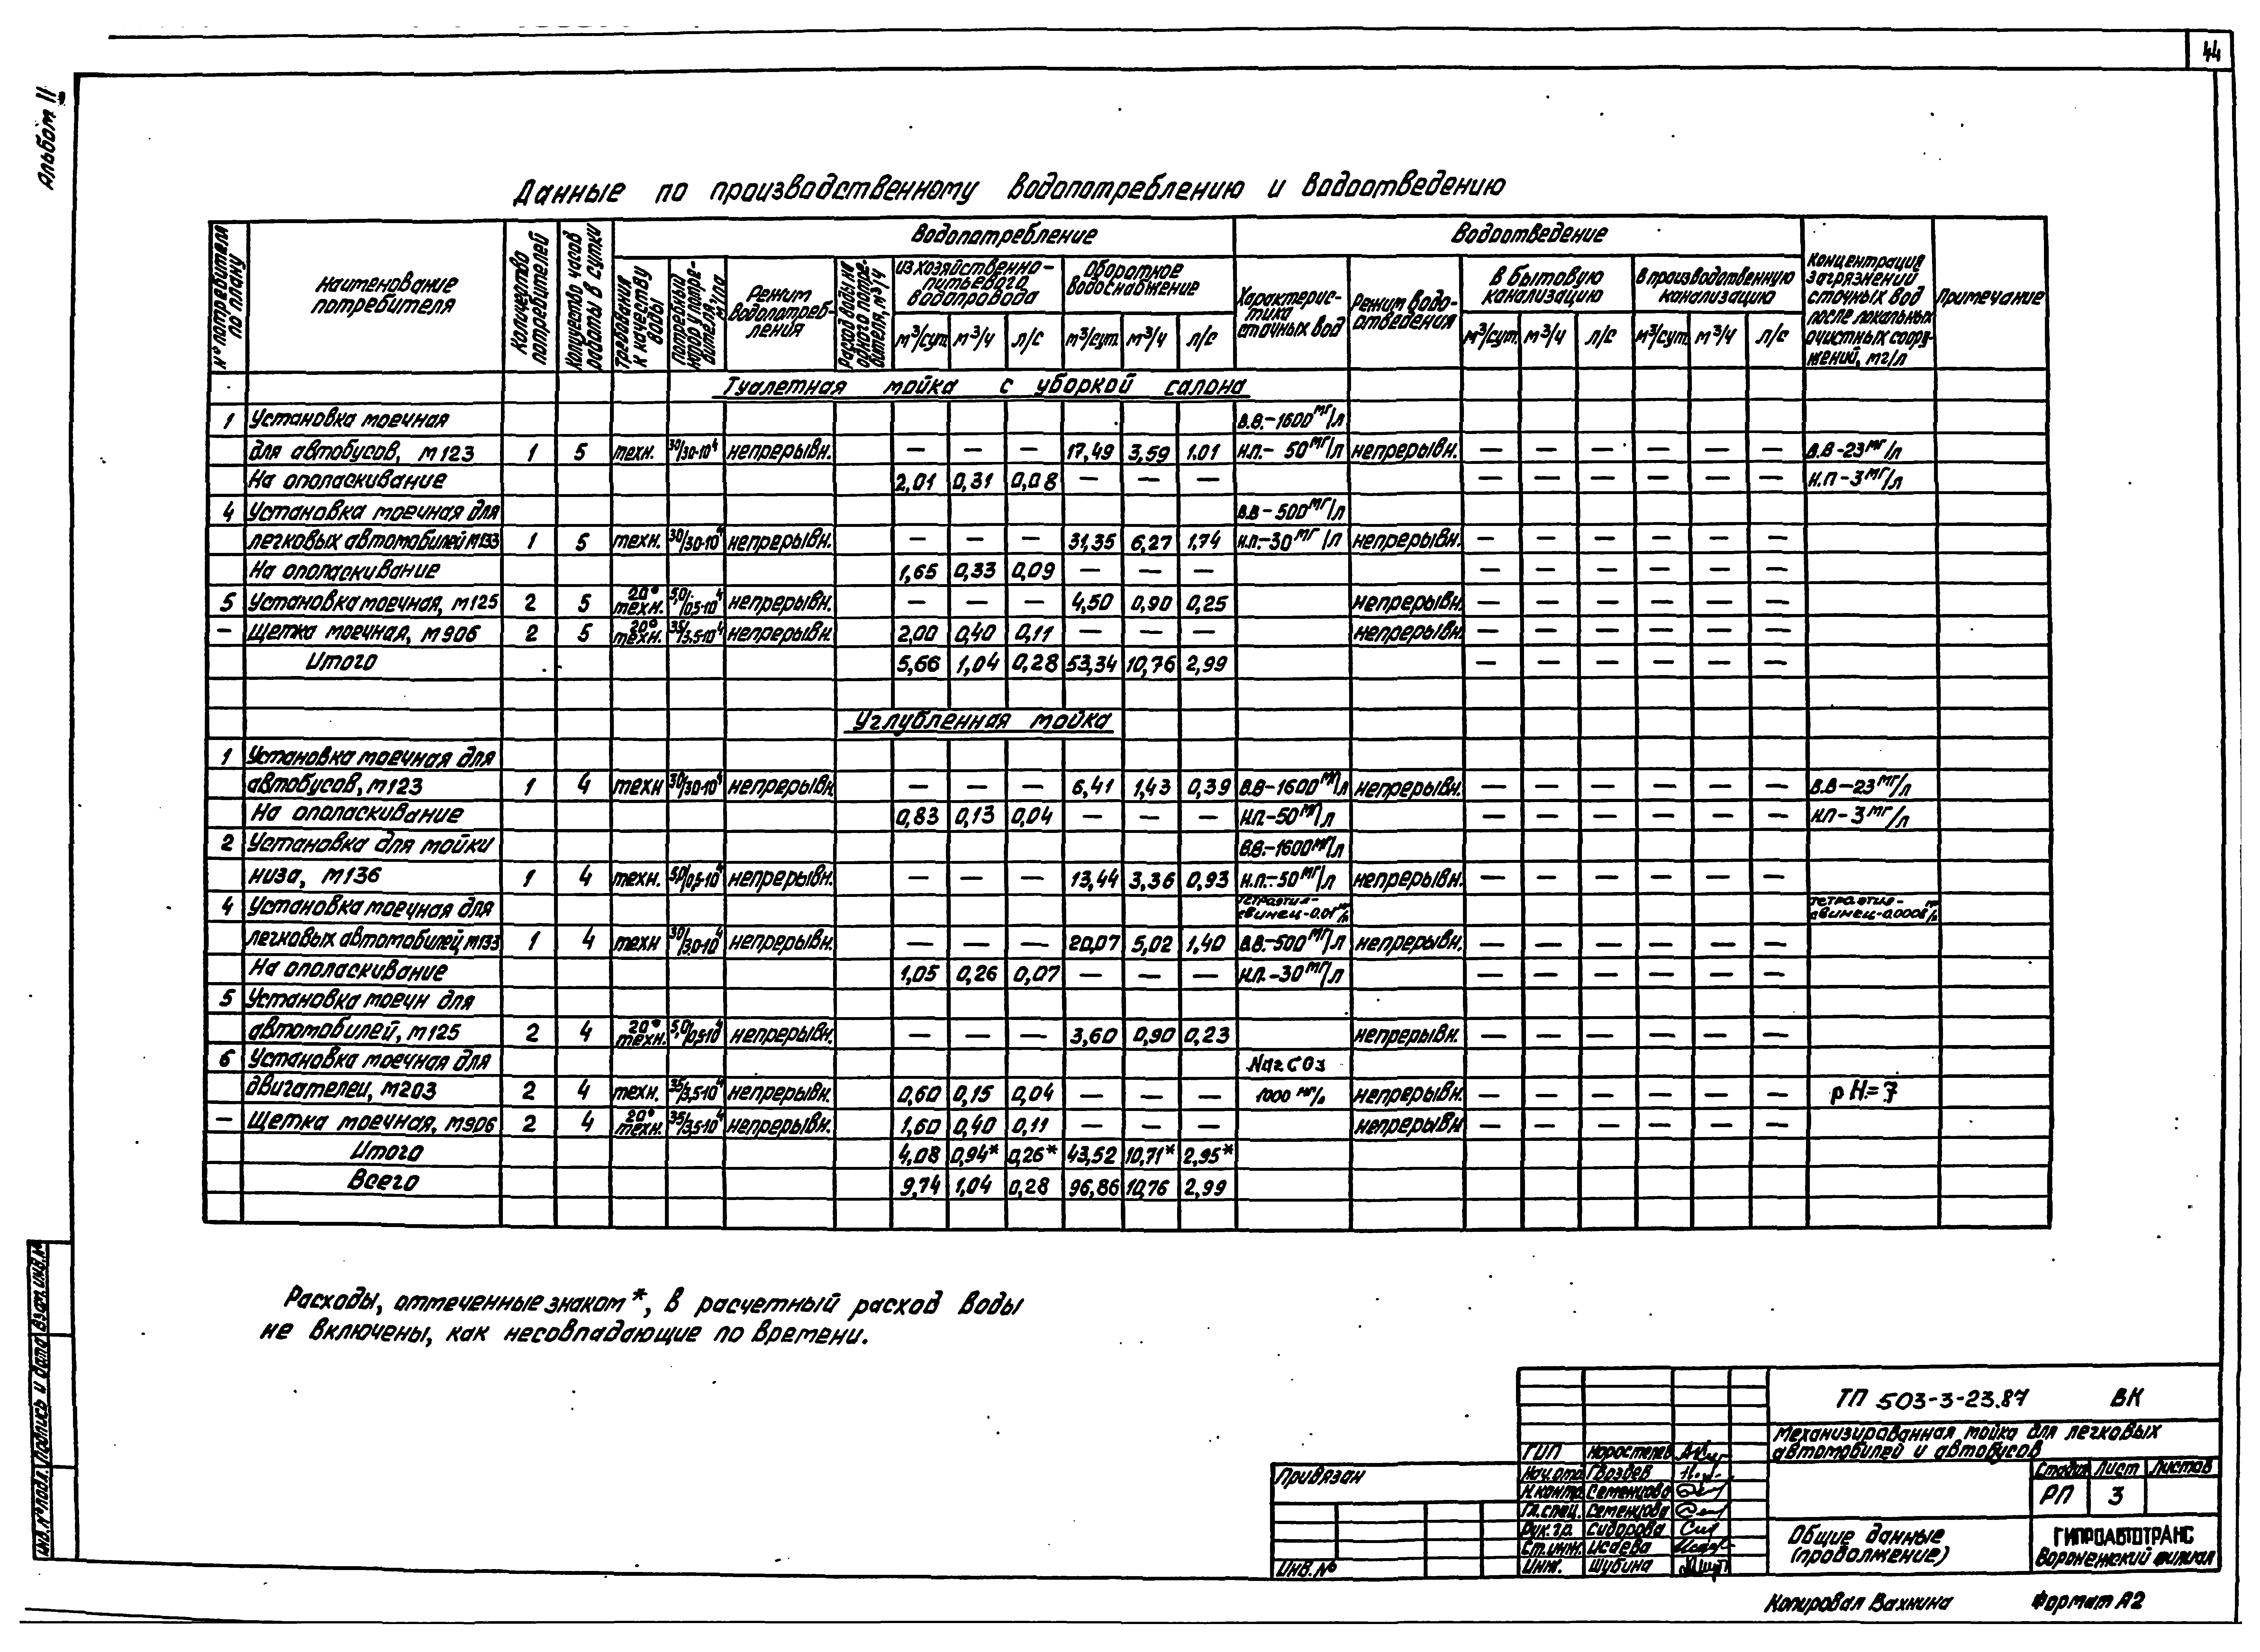 44
Альбом II
Данные по производственному водопотреблению и водоотведению
№ потребителя по плану
Наименование потребителя
Количество потребителей
Количество часов работы в сутки
Водопотребление
Требования к качеству воды
Потребный напор у потребителя, м/па
Режим водопотребления
Расход воды на одного потребителя, м³/ч
из хозяйственно-питьевого водопровода
Оборотное водоснабжение
м³/сут. м³/ч л/с м³/сут. м³/ч л/с
Водоотведение
Характеристика сточных вод
Режим водоотведения
в бытовую канализацию
в производственную канализацию
м³/сут. м³/ч л/с м³/сут м³/ч л/с
Концентрация загрязнений сточных вод после локальных очистных сооружений, мг/л
Примечание
Туалетная мойка с уборкой салона
1 Установка моечная В.В.-1600 мг/л
для автобусов, М123 1 5 техн. 30/30·10⁴ непрерывн. — — — 17,49 3,59 1,01 Н.П.- 50 мг/л непрерывн. — — — — — — В.В-23 мг/л
На ополаскивание 2,01 0,31 0,08 — — — — — — — — — Н.П-3 мг/л
4 Установка моечная для В.В-500 мг/л
легковых автомобилей М133 1 5 техн. 30/30·10⁴ непрерывн. — — — 31,35 6,27 1,74 Н.П.-30 мг/л непрерывн. — — — — — —
На ополаскивание 1,65 0,33 0,09 — — — — — — — — —
5 Установка моечная, М125 2 5 20° техн. 5,0/0,5·10⁴ непрерывн. — — — 4,50 0,90 0,25 непрерывн. — — — — — —
— Щетка моечная, М906 2 5 20° техн. 35/3,5·10⁴ непрерывн. 2,00 0,40 0,11 — — — непрерывн. — — — — — —
Итого 5,66 1,04 0,28 53,34 10,76 2,99 — — — — — —
Углубленная мойка
1 Установка моечная для
автобусов, М123 1 4 техн 30/30·10⁴ непрерывн. — — — 6,41 1,43 0,39 В.В-1600 мг/л непрерывн. — — — — — — В.В-23 мг/л
На ополаскивание 0,83 0,13 0,04 — — — Н.П.-50 мг/л — — — — — — Н.П-3 мг/л
2 Установка для мойки В.В.-1600 мг/л
низа, М136 1 4 техн. 50/0,5·10⁴ непрерывн. — — — 13,44 3,36 0,93 Н.П.-50 мг/л непрерывн. — — — — — —
4 Установка моечная для тетраэтил-свинец-0.01 мг/л тетраэтил-свинец-0.0008 мг/л
легковых автомобилей М133 1 4 техн 30/30·10⁴ непрерывн. — — — 20,07 5,02 1,40 В.В.-500 мг/л непрерывн. — — — — — —
На ополаскивание 1,05 0,26 0,07 — — — Н.П.-30 мг/л — — — — — —
5 Установка моечн для
автомобилей, М125 2 4 20° техн. 5,0/0,5·10⁴ непрерывн. — — — 3,60 0,90 0,23 непрерывн. — — — — — —
6 Установка моечная для Na2CO3
двигателей, М203 2 4 техн. 35/3,5·10⁴ непрерывн. 0,60 0,15 0,04 — — — 1000 мг/л непрерывн. — — — — — — pH=7
— Щетка моечная, М906 2 4 20° техн. 35/3,5·10⁴ непрерывн. 1,60 0,40 0,11 — — — непрерывн — — — — — —
Итого 4,08 0,94* 0,26* 43,52 10,71* 2,95*
Всего 9,74 1,04 0,28 96,86 10,76 2,99
Расходы, отмеченные знаком *, в расчетный расход воды
не включены, как несовпадающие по времени.
ТП 503-3-23.87 ВК
Механизированная мойка для легковых
автомобилей и автобусов
Привязан
Инв. №
ГИП Коростелев
Нач.отд. Гвоздев
Н.контр. Семенцова
Гл.спец. Семенцова
Рук.гр. Сидорова
Ст.инж. Исаева
Инж. Шубина
Стадия Лист Листов
РП 3
Общие данные
(продолжение)
ГИПРОАВТОТРАНС
Воронежский филиал
Инв.№ подл. Подпись и дата Взам.инв.№
Копировал Вахнина Формат А2